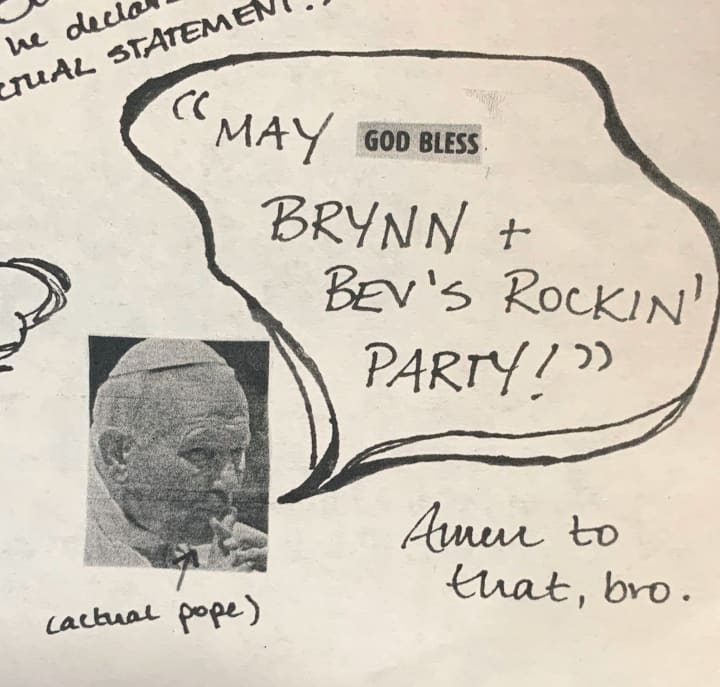 he declar
CTUAL STATEMENT.
"MAY GOD BLESS
BRYNN +
BEV'S ROCKIN'
PARTY!"
(actual pope)
Amen to
that, bro.